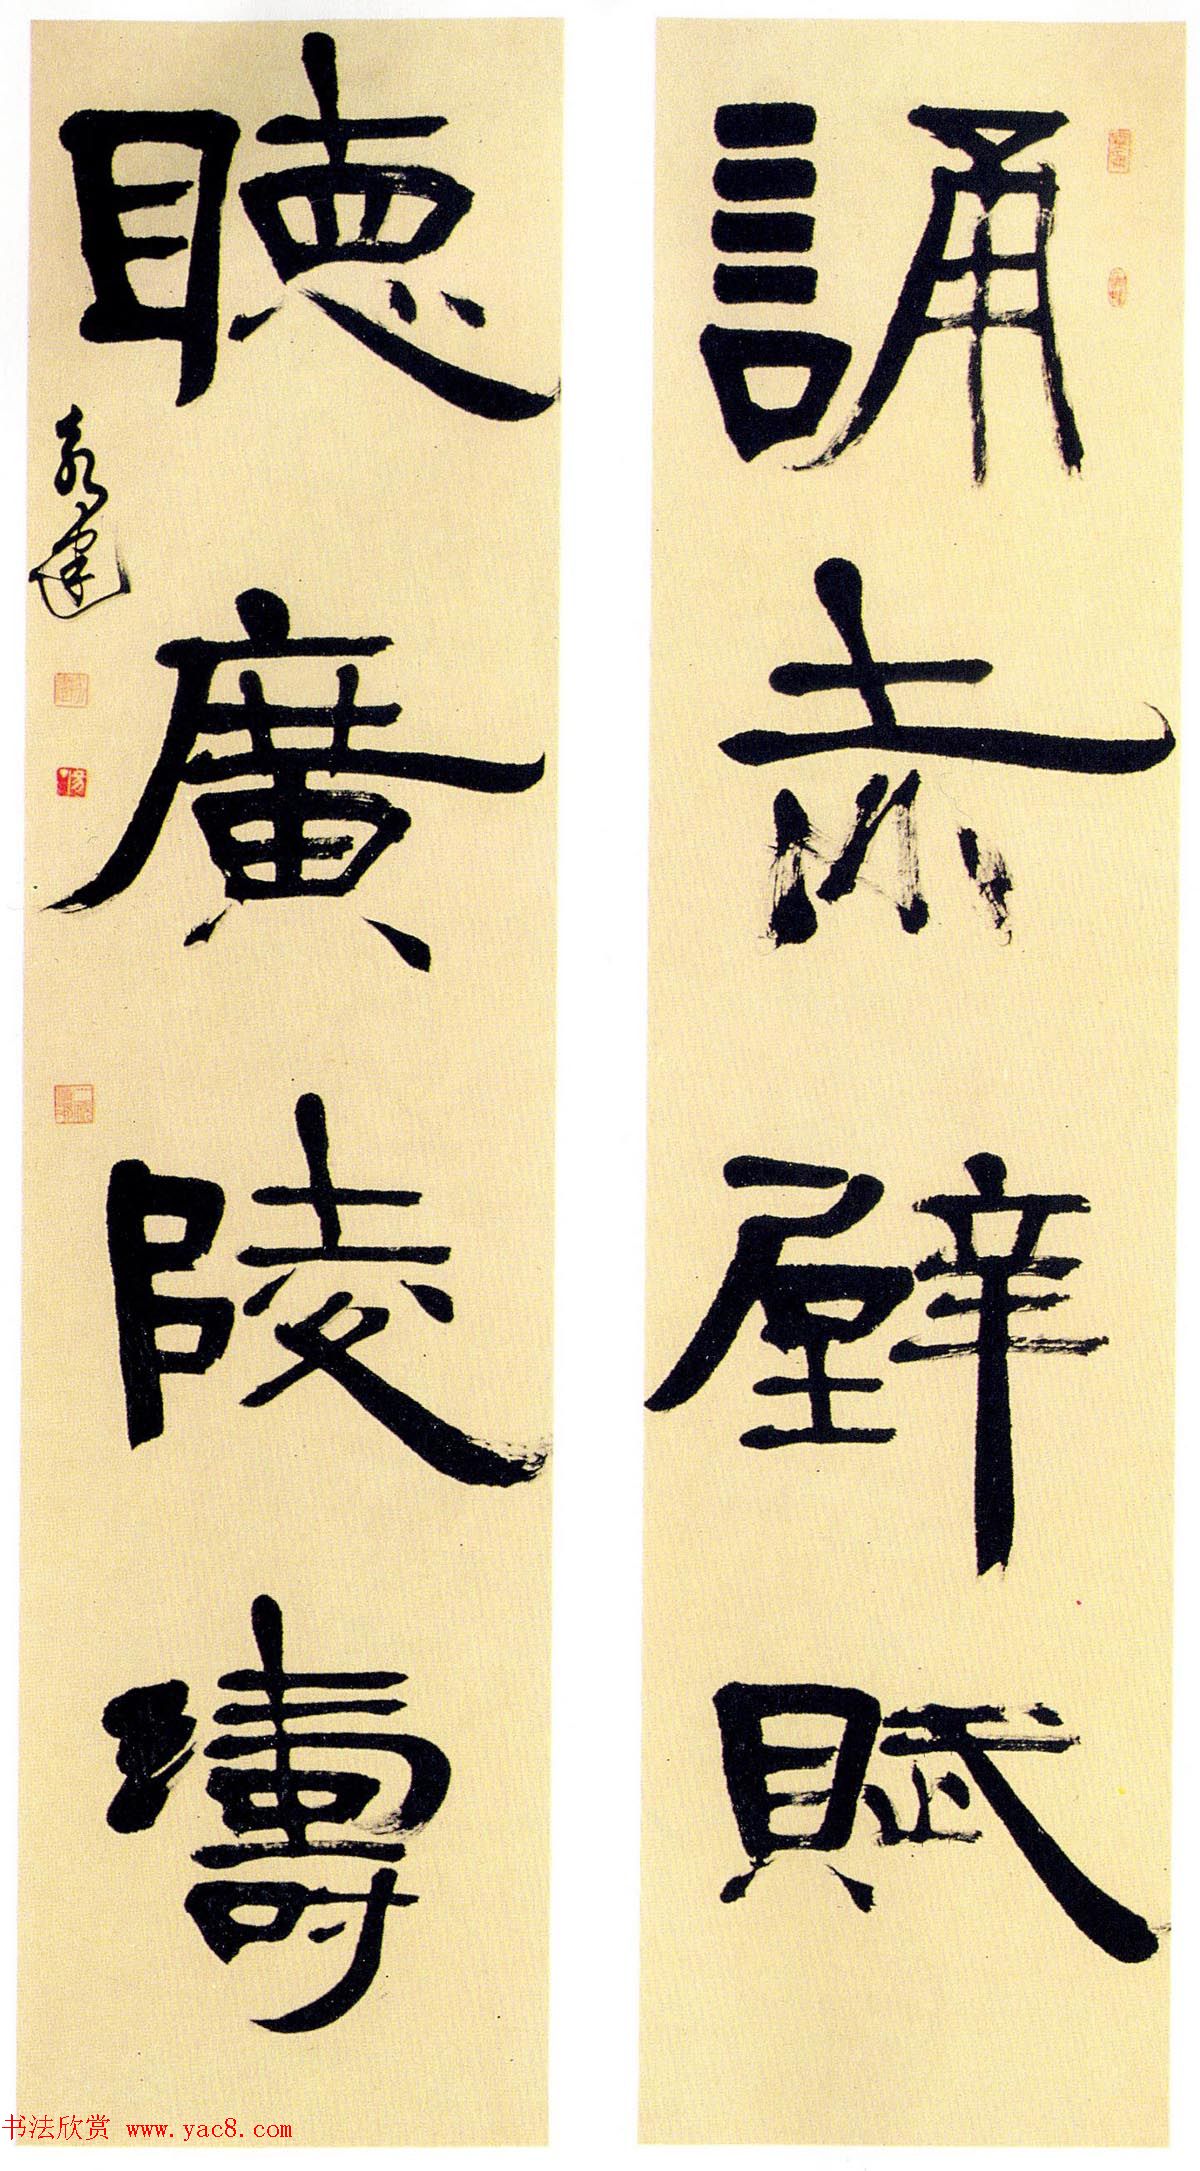 誦赤壁賦
聽廣陵濤
书法欣赏 www.yac8.com